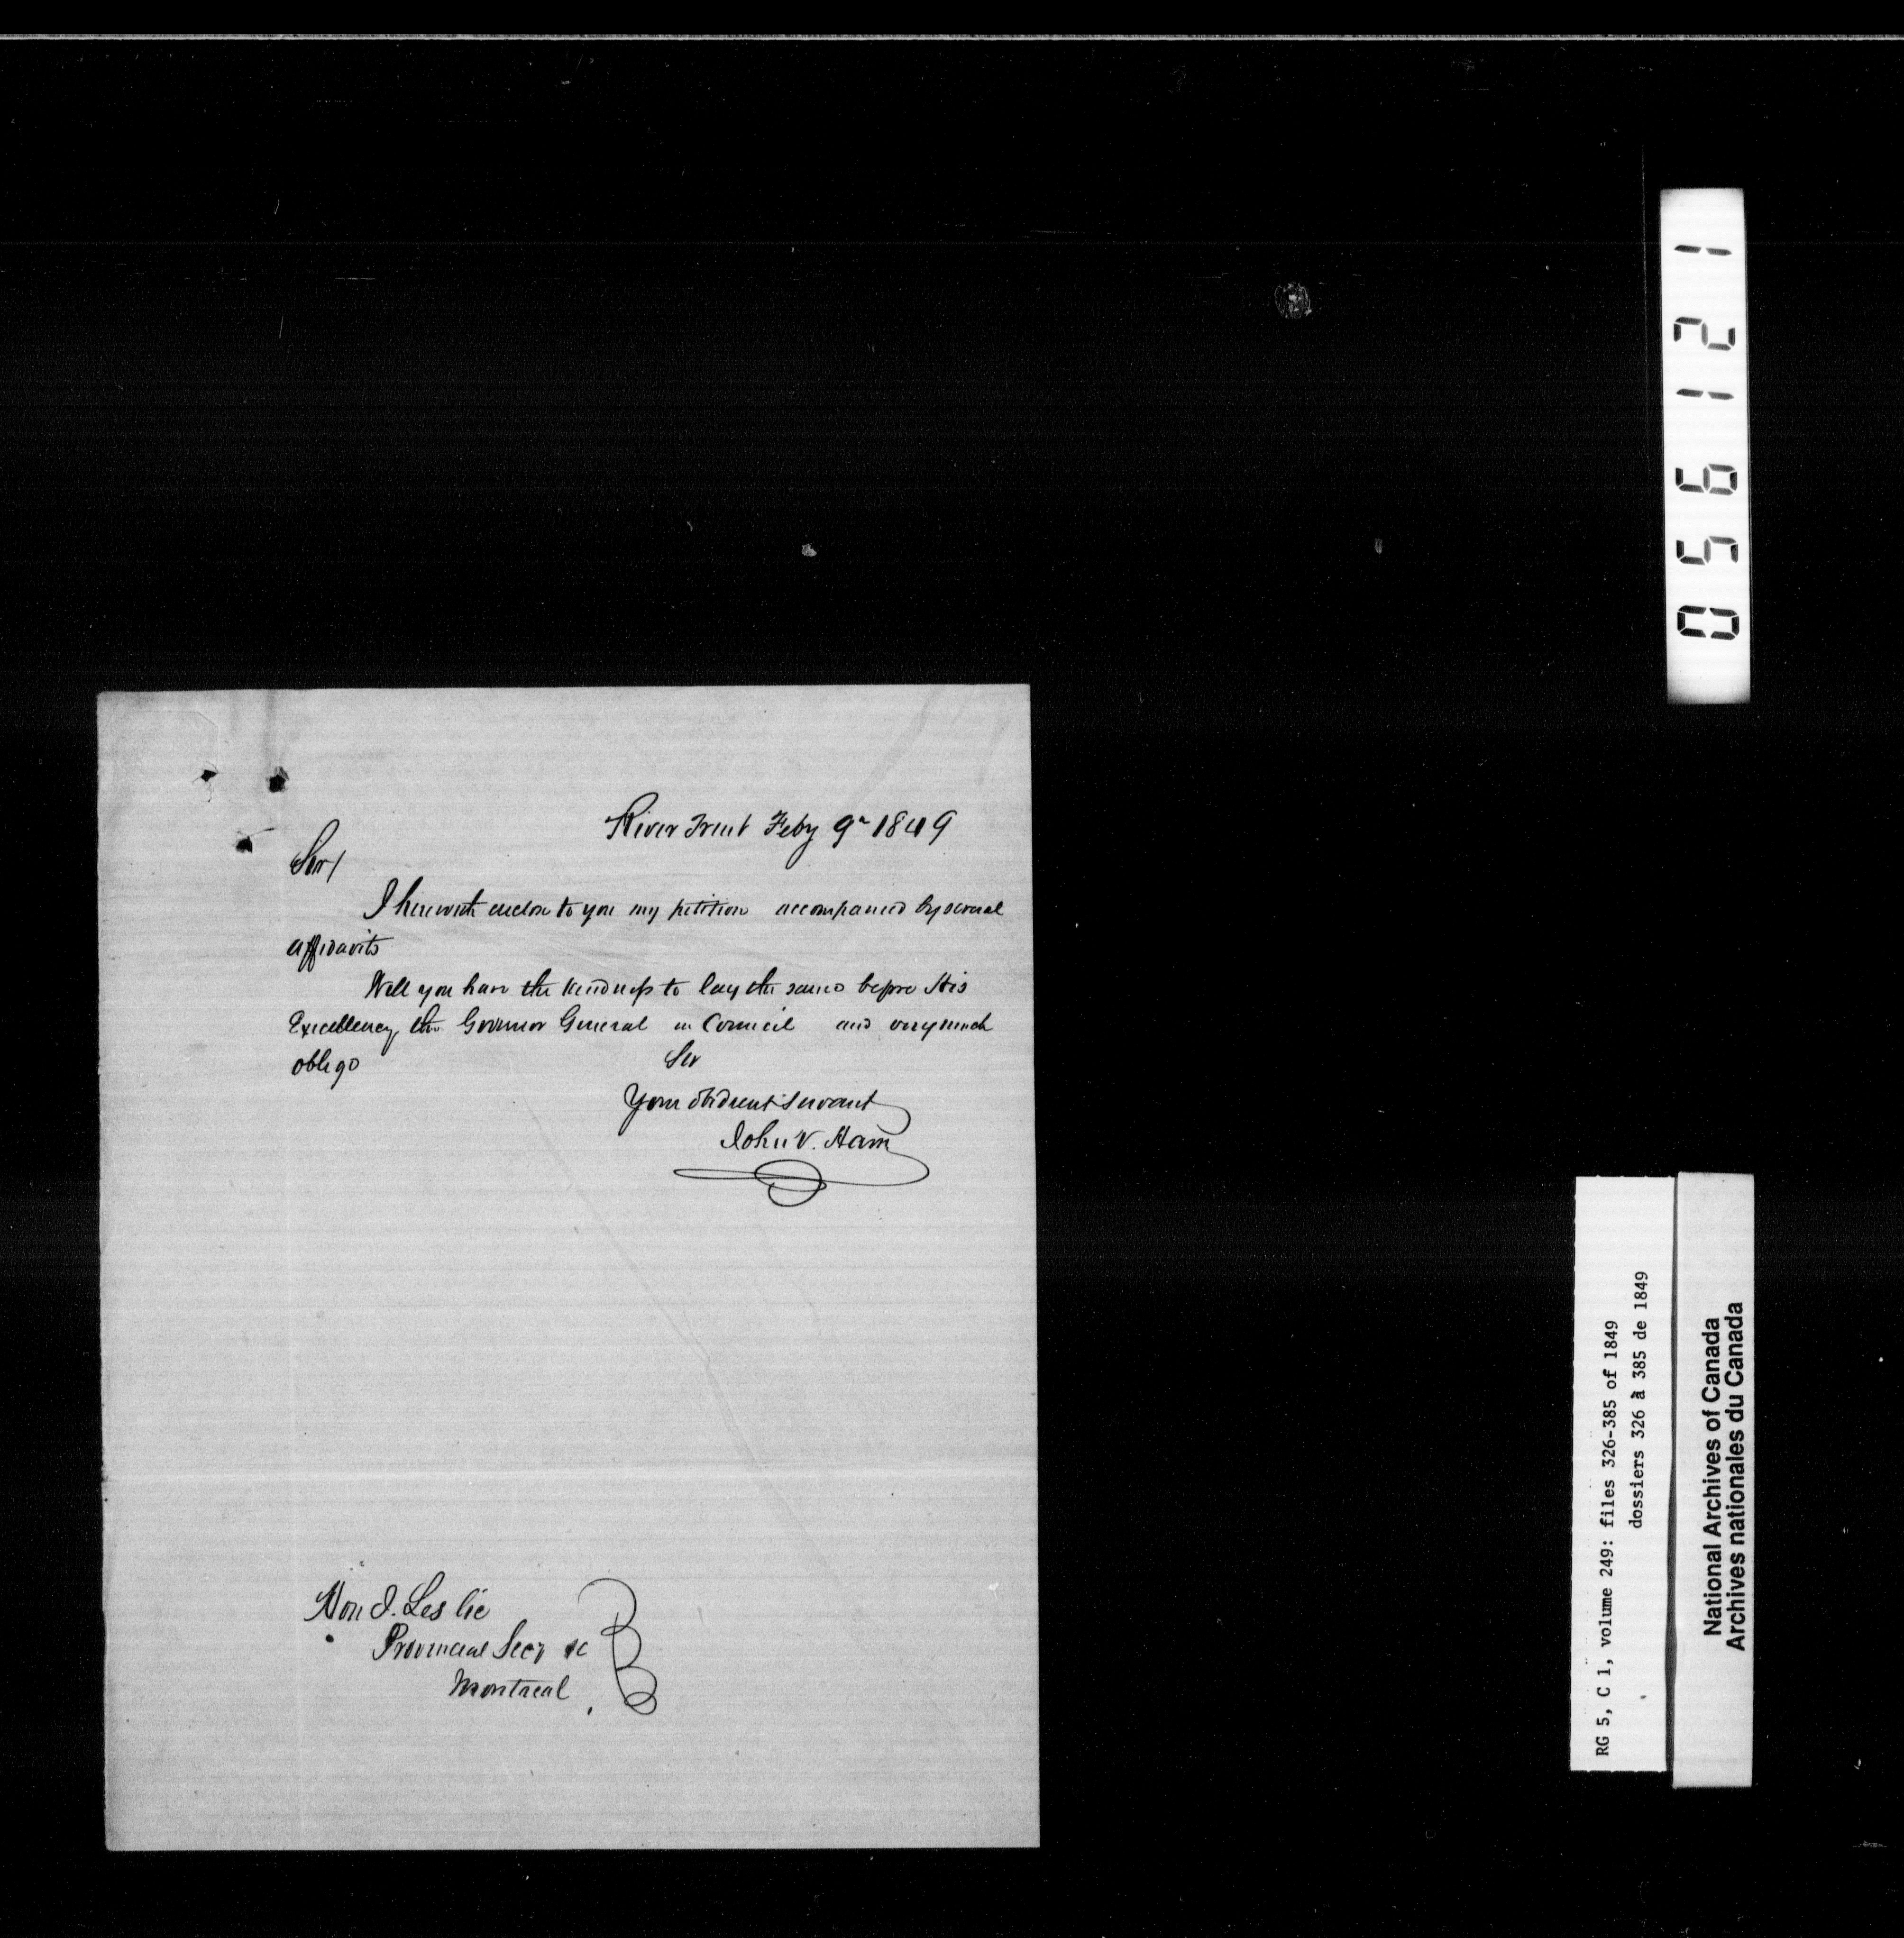 River Trent Feby 9th 1849
Sir/
I herewith enclose to you my petition accompanied by several
affidavits
Will you have the kindness to lay the same before His
Excellency the Governor General in Council and very much
oblige
Sir
Your obedient servant
John V. Ham
Hon J. Leslie
Provincial Secy &c
Montreal
056121
RG 5, C 1, volume 249: files 326-385 of 1849
dossiers 326 à 385 de 1849
National Archives of Canada
Archives nationales du Canada